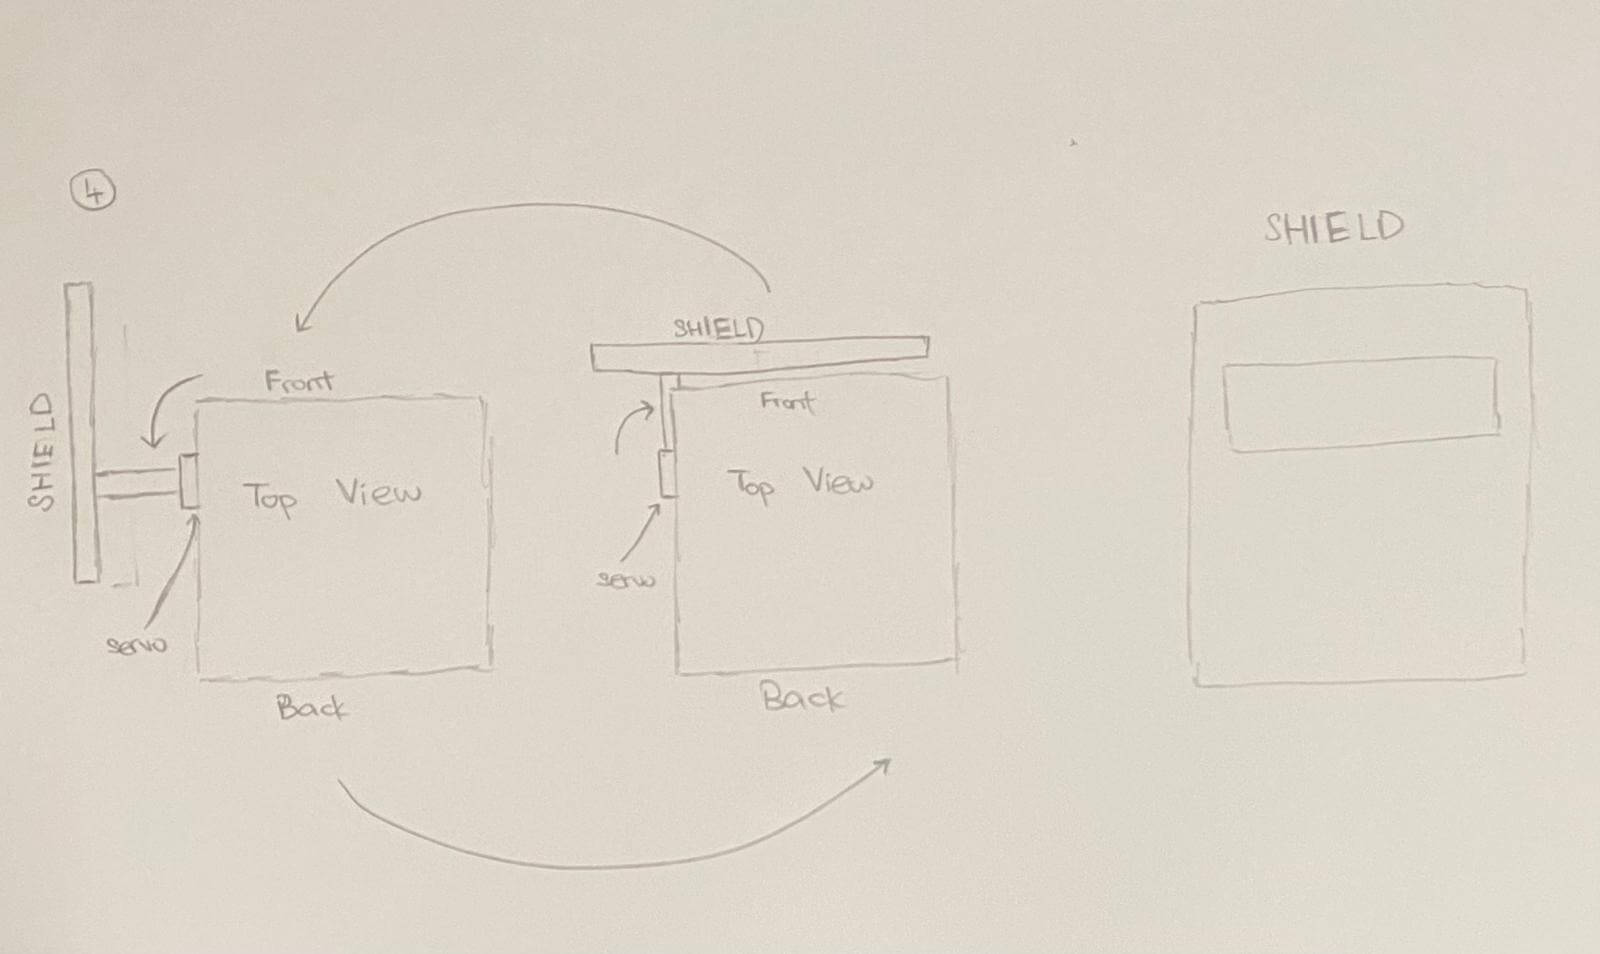 4
SHIELD
Front
Top View
servo
Back
SHIELD
Front
Top View
servo
Back
SHIELD